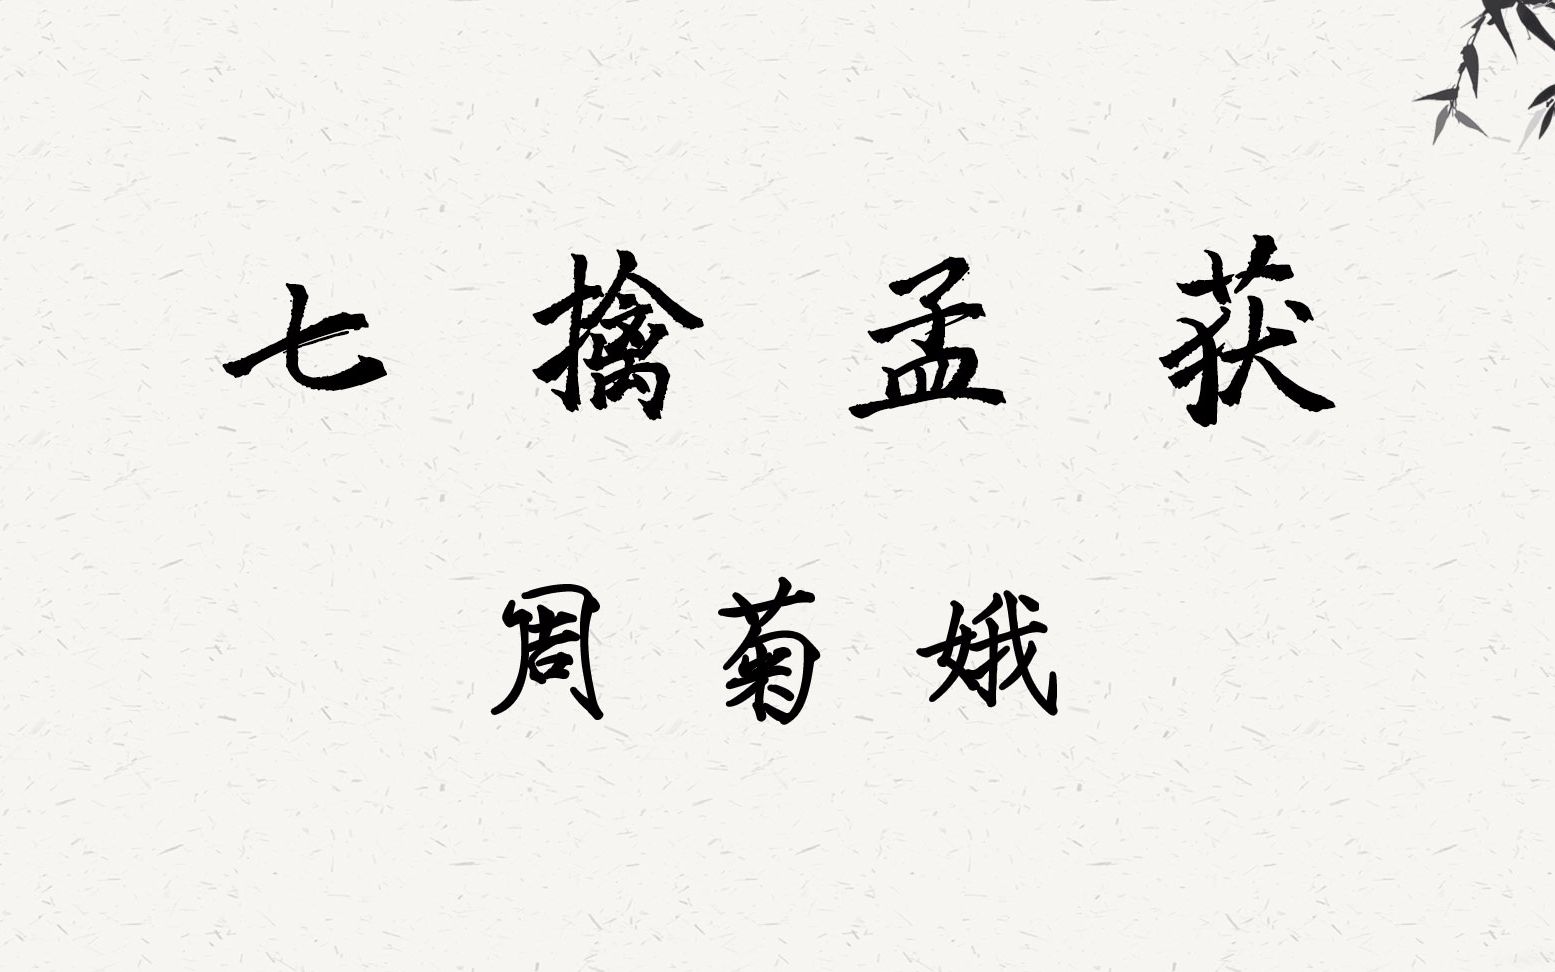 七擒孟获
周菊娥